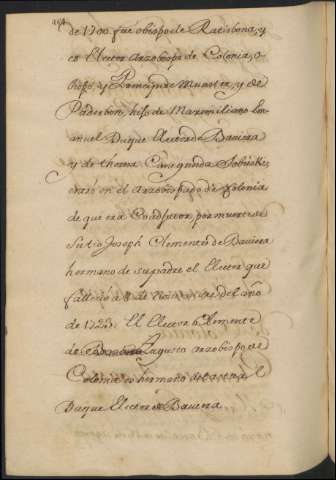 de 1700 fue obispo de Ratisbona, y
es Elector Arzobispo de Colonia, o-
bispo, y Principe de Munster, y de
Paderborn, hijo de Maximiliano Em-
anuel Duque Elector de Baviera
y de theresa Cunegunda Sobieski;
entro en el Arzobispado de Colonia
de que era Coadjutor, por muerte de
su tio Joseph Clemente de Baviera
hermano de su padre el Elector que
fallecio a de Noviembre del año
de 1723. El Elector Clemente
de Augusto arzobispo de
Colonia es hermano del actual
Duque Elector de Baviera.